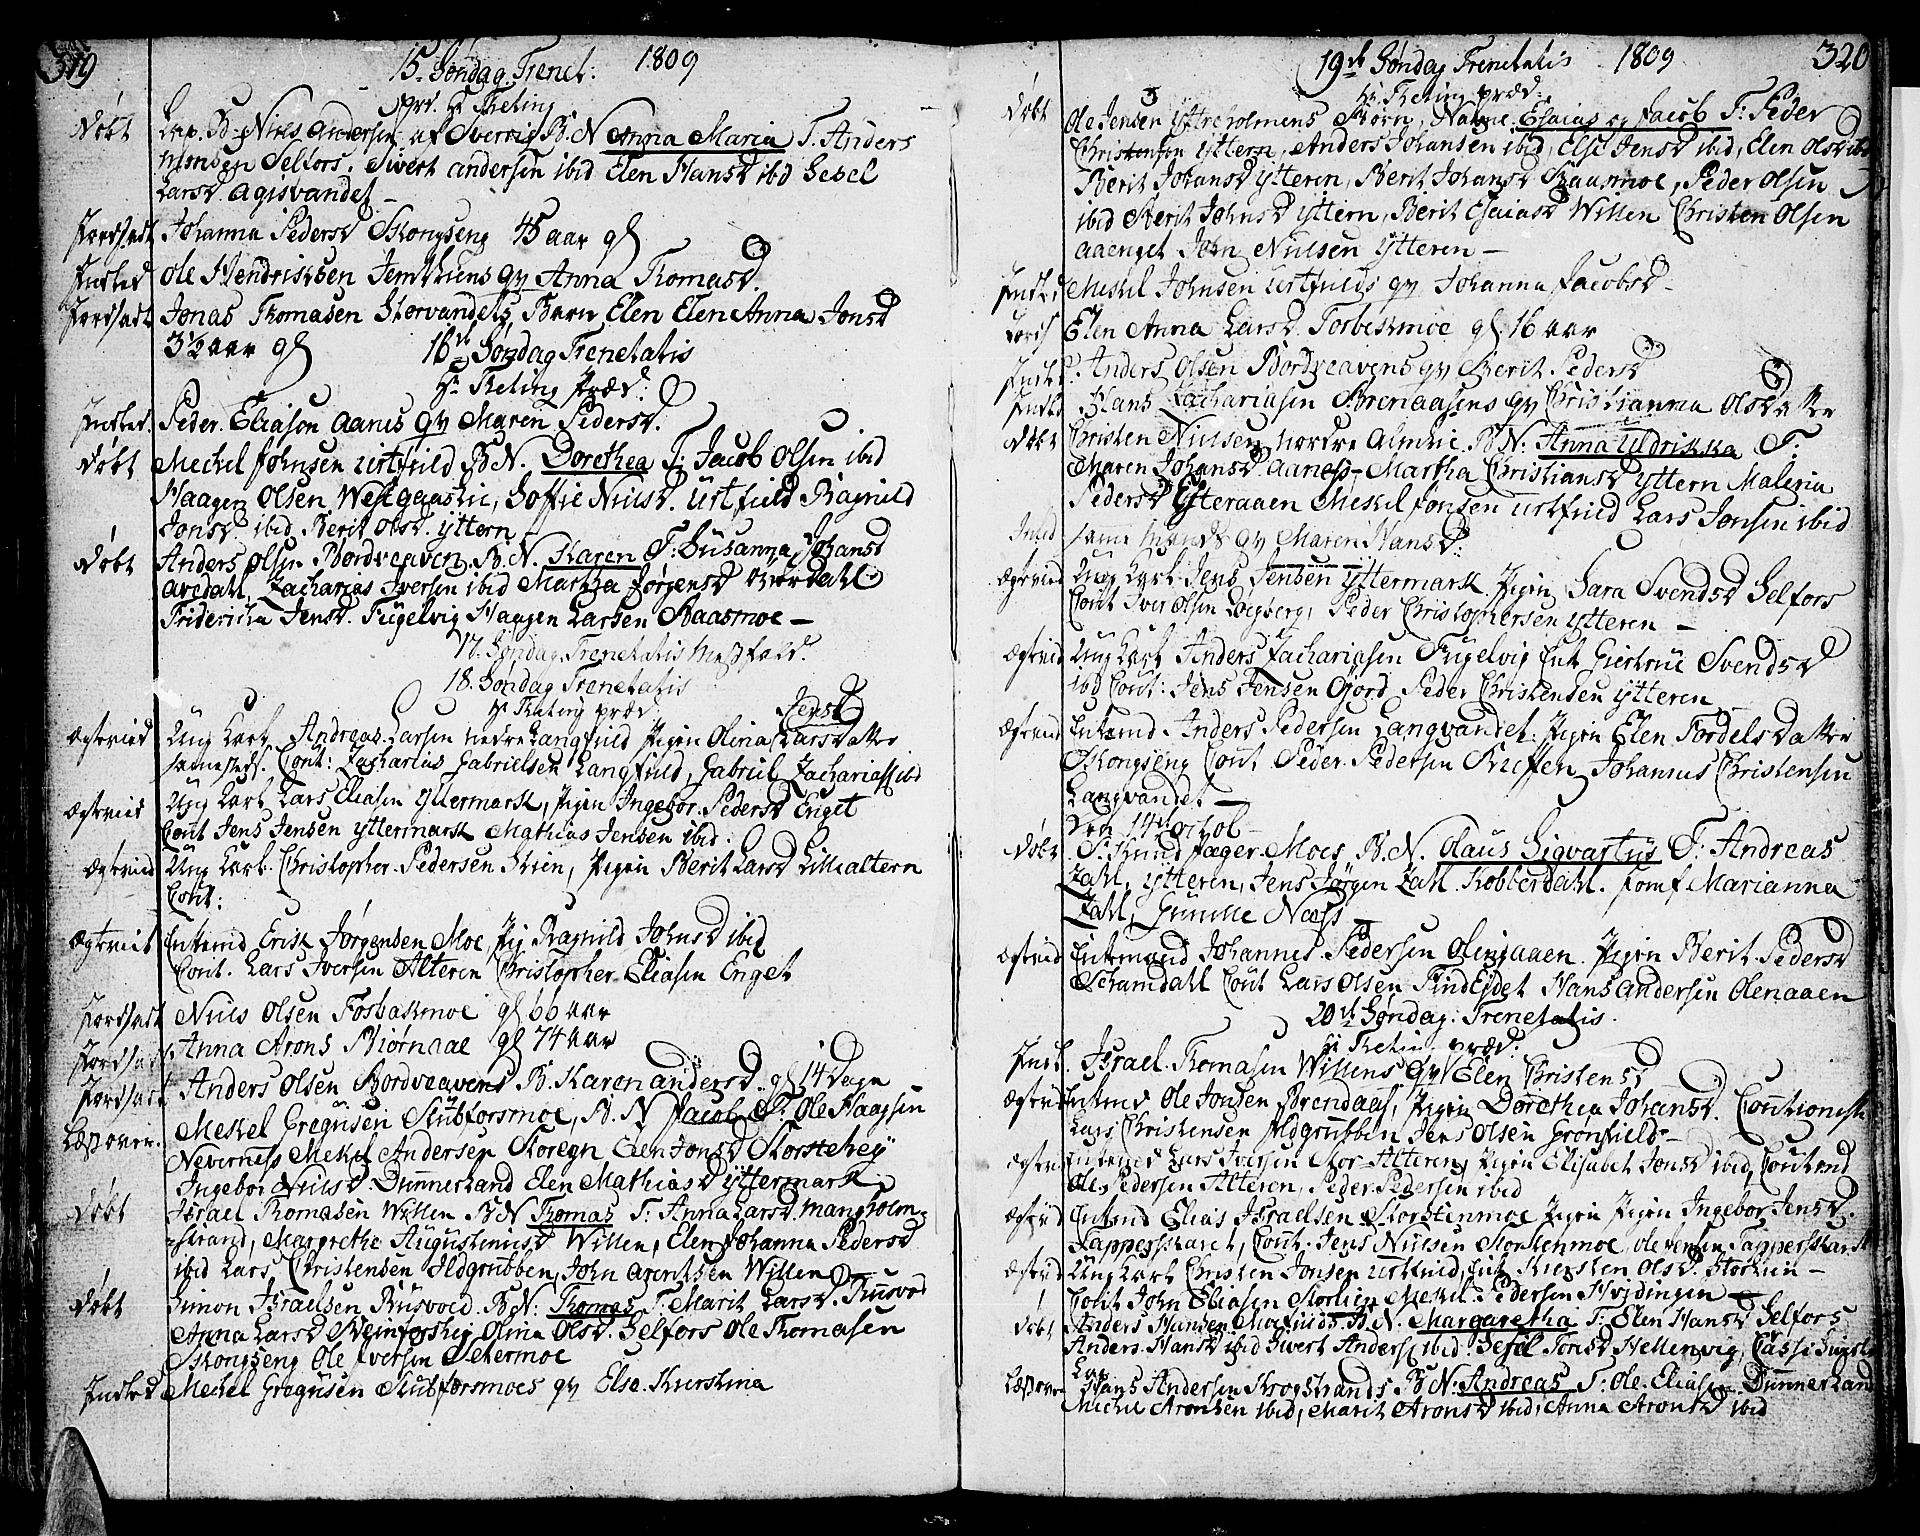 319
15. Søndag Trenet: 1809
Hr Theting
Døbt Lap. B: Niels Andersen af Sverrig B. N Anna Maria T. Anders
Monsen Selfors, Sivert andersen ibid Elen Hansd ibd Sebel
Larsd Agisvandet
Jordsadt Johanna Pedersd Skongseng 45 aar gl
Indled Ole Hendrichsen Jemthiens qv Anna Thomasd.
Jordsadt Jonas Thomasen Storvandets Barn Elen Elen Anna Jonsd
3½ aar gl 16de Søndag Trenetatis
Hr Theting Præd:
Indled. Peder Eliasen Aanes qv Maren Pedersd.
Døbt Mechel Johnsen Urtfield B N. Dorethea T: Jacob Olsen ibid
Haagen Olsen Westgaaslie, Soffie Nielsd. Urtfield Ragnild
Jonsd. ibid Berit Olsd. Yttern
Døbt Anders Olsen Bordveaven B. N. Karen T: Susanna Johansd
avedahl, Zacharias Iversen ibid Martha Jørgensd Øverdahl
Friderica Jensd. Fugelvig Haagen Larsen Baasmoe —
17. Søndag Trenetatis Messfald.
18. Søndag Trenetatis
Hr Theting præd
Jensd
Ægtevied Ung Karl Andreas Larsen nedre Langfield Pigen Olina Larsdatter
samesteds. Cout: Zacharias Gabrielsen Langfield, Gabriel Zachariass ibd
Ægtevied Ung Karl Lars Eliasen Yttermark, Pigen Ingebor Pedersd Enget
Cout Jens Jensen Yttermark Mathias Jensen ibid.
Ægtevied Ung Karl Christopher Pedersen Skien, Pigen Berit Larsd Lillealtern
Cout:
Ægtevied Enkemd Erik Jørgensen Moe Pig Ragnild Johnsd ibid
Cout. Lars Iversen Alteren Christopher Eliasen Enget
Jordsadt Niels Olsen Fosbakmoe gl 66 aar
Jordsadt Anna Arons Biørnaae gl 74 aar
Jordsadt Anders Olsen Bordveavens B. Karen andersd. gl 14 Dage
Læst over. Mekel Gregusen Stubforsmoe, B. N Jacob T. Ole Haagsen
Neverness Mekel Andersen Storegn Elen Jonsd Storstehey
Ingebor Nielsd. Dunnerland Elen Mathiasd Yttermark
Døbt Israel Thomasen Willen B N Thomas T. Anna Larsd Mangholm=
=strand, Margrethe Augustinusd Willen, Elen Johanna Pedersd
ibid Lars Christensen Ildgrubben, John Arentsen Willen
Døbt Simon Israelsen Rusvoed B N: Thomas T. Marit Larsd. Rusvod
Anna Larsd Olina Olsd. Selfors Ole Thomasen
Skongseng Ole Iversen Setermoe
Indled Mechel Gregusen Stubforsmoes qv Else Kierstina
320
19de Søndag Trenetatis 1809
Hr Theting præd:
Døbt Ole Jensen Ytreholmens Børn, Nafne Esaias og Jacob T: Peder
Christensen Yttern, Anders Johansen ibid, Else Jensd ibid, Elen Olsd ibd
Berit Johansd Ytteren, Berit Johansd Baasmoe, Peder Olsen
ibid Berit Johnsd Yttern, Berit Esaiasd Willen Christen Olsen
aaenget John Nielsen Ytteren —
Indled Mekel Johnsen Urtfields qv Johanna Jacobsd
Elen Anna Larsd. Forbeskmoe gl 16 aar
Indled. Anders Olsen Bordveavens qv Berit Pedersd
Indled Hans Zachariasen Brenaasens qv Christianna Olsdatter
Døbt Christen Nielsen nordre Almlie B N: Anna Uldrikka T:
Maren Johansd. Aaness Martha Christiansd Yttern Maleria
Pedersd Ytteraaen Mekel Jonsen Urtfield Lars Jonsen ibid
Inled same Mands qv Maren Hansd:
Ægtevied Ung Karl Jens Jensen Yttermark Pigen Sara Svendsd Selfors
Cout Iver Olsen Løgberg, Peder Christophersen Ytteren —
Ægtevid Ung Karl Anders Zachariasen Fugelvig Enk Giertrue Svendsd
ibd Cout: Jens Jensen Giord Peder Christensen Ytteren
Ægtevied Enkemd Anders Pedersen Langvandet. Pigen Elen Fordelsdatter
Skongseng Cout Peder Pedersen Røffen Johannes Christensen
Langvandet —
Den 14de Octob
Døbt S: Knud Jæger Moes B. N. Olaus Sigvartus T: Andreas
Zahl, Ytteren, Jens Jørgen Zahl Kobberdahl. Jomf Marianna
Zahl, Gunille Næss
Ægtevied Enkemand Johannes Pedersen Olenaaen Pigen Berit Pedersd
Schamdahl Cout Lars Olsen FindEydet Hans Andersen Olenaaen
20de Søndag: Trenetatis.
Hr Thetin præd:
Indl. Israel Thomasen Willens qv Elen Christens
Ægtevied Enkemd Ole Jonsen Brendaas, Pigen Dorethea Johansd. Coutionest
Lars Christensen Ildgrubben Jens Olsen Grønfield —
Ægtevi Enkemd Lars Iversen Stor-Alteren Pigen Elisabet Jonsd ibid, Cout end
Ole Pedersen Alteren, Peder Pedersen ibid
Ægtevid Enkemd Elias Israelsen Storstenmoe Pigen Pigen Ingebor Jensd.
Tapperskaret, Cout. Jens Nielsen Storstenmoe, Ole Jensen Tapperskaret
Ægtevid Ung Karl Christen Jonsen Urtfield, Enk Kiersten Olsd. Storlien —
Cout John Eliasen Storlien Mekel Pedersen Hvidingen
Døbt Anders Hansen Moefields B. N. Margaretha T: Elen Hansd Selfors
Anders Hansd ibid Sivert Anders ibid Sefel Tonsd Hellenvig,
Lap
Læst over Hans Andersen Krogstrands B N: Andreas T: Ole Eliasen Dunnerland
Michel Aronsen ibid, Marit Aronsd ibid, Anna Aronsd ibid